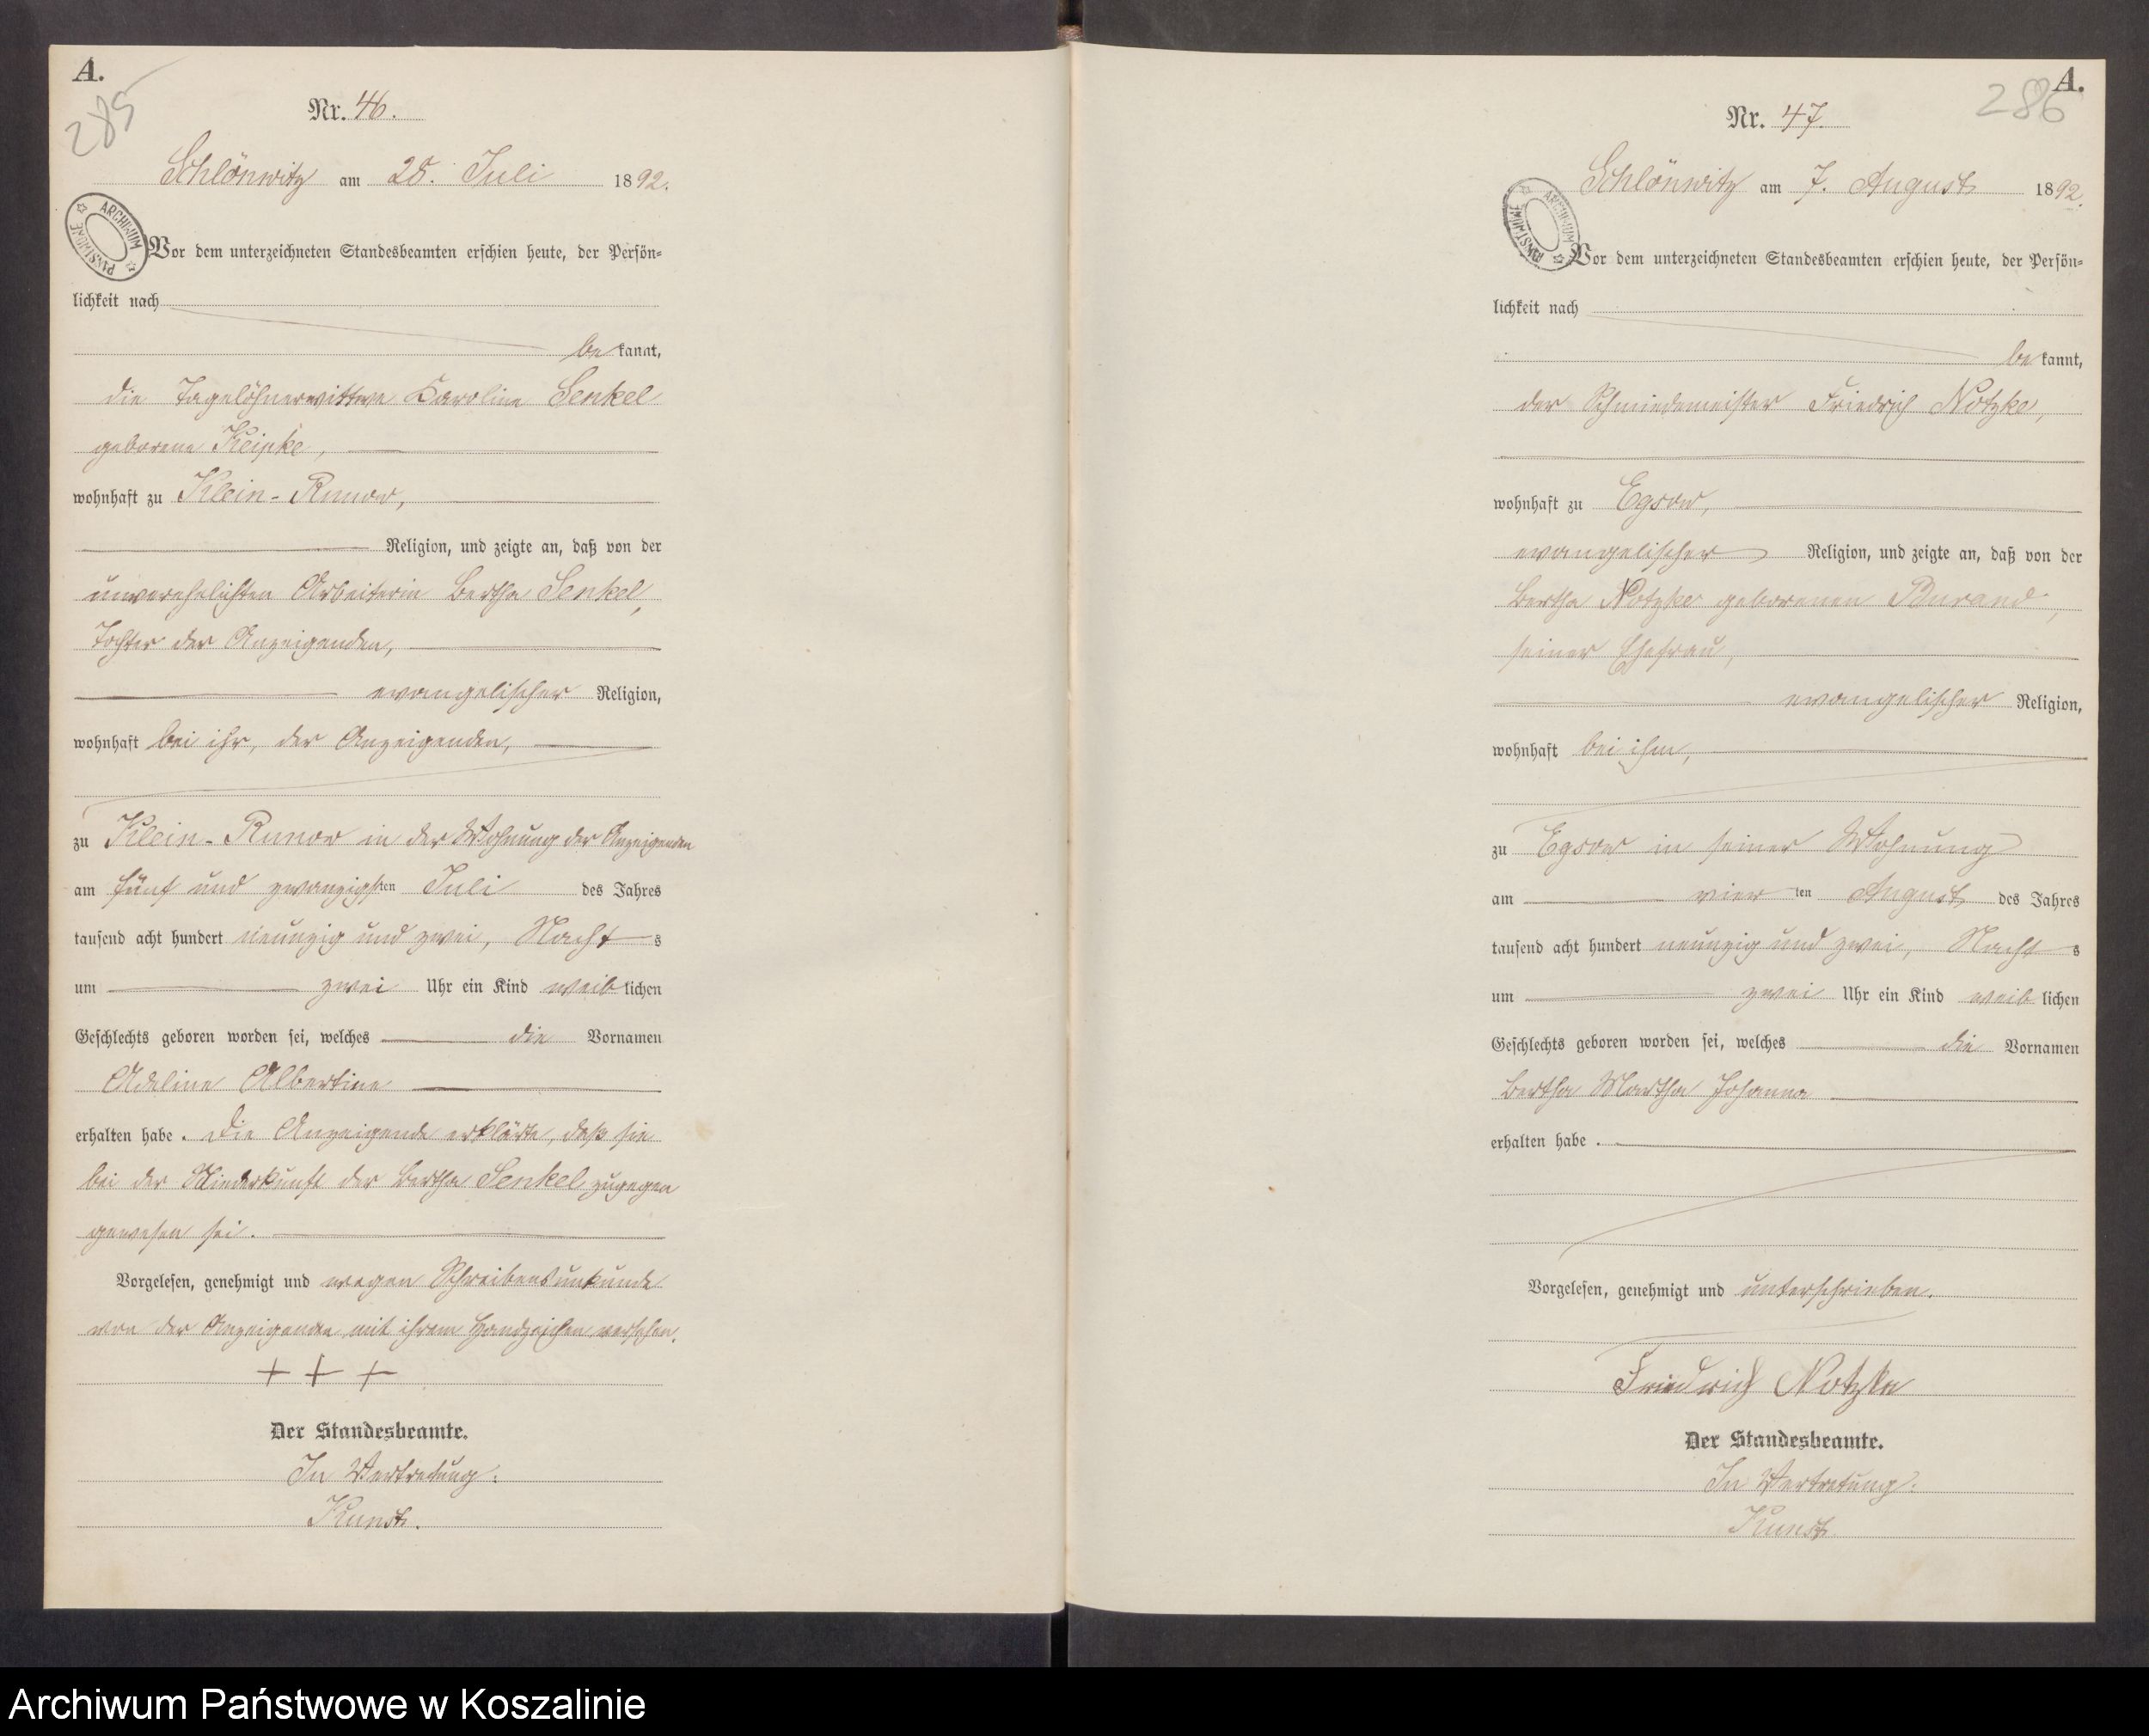 A.
285
Nr. 46.
Schlönwitz am 28. Juli 1892.
ARCHIWUM PAŃSTWOWE
Vor dem unterzeichneten Standesbeamten erschien heute, der Persön-
lichkeit nach
be kannt,
die Tagelöhnerwittwe Caroline Senkel
geborene Keipke,
wohnhaft zu Klein-Runow,
Religion, und zeigte an, daß von der
unverehelichten Arbeiterin Bertha Senkel,
Tochter der Anzeigenden,
evangelischer Religion,
wohnhaft bei ihr, der Anzeigenden,
zu Klein-Runow in der Wohnung der Anzeigenden
am fünf und zwanzigsten Juli des Jahres
tausend acht hundert neunzig und zwei, Nachts
um zwei Uhr ein Kind weiblichen
Geschlechts geboren worden sei, welches die Vornamen
Adeline Albertine
erhalten habe. Die Anzeigende erklärte, daß sie
bei der Niederkunft der Bertha Senkel zugegen
gewesen sei.
Vorgelesen, genehmigt und wegen Schreibensunkunde
von der Anzeigenden mit ihrem Handzeichen versehen.
+ + +
Der Standesbeamte.
In Vertretung:
Kunst.
A.
286
Nr. 47.
Schlönwitz am 7. August 1892.
ARCHIWUM PAŃSTWOWE
Vor dem unterzeichneten Standesbeamten erschien heute, der Persön-
lichkeit nach
be kannt,
der Schmiedemeister Friedrich Notzke,
wohnhaft zu Egsow,
evangelischer Religion, und zeigte an, daß von der
Bertha Notzke geborenen Burand,
seiner Ehefrau,
evangelischer Religion,
wohnhaft bei ihm,
zu Egsow in seiner Wohnung
am vierten August des Jahres
tausend acht hundert neunzig und zwei, Nachts
um zwei Uhr ein Kind weiblichen
Geschlechts geboren worden sei, welches die Vornamen
Bertha Martha Johanna
erhalten habe.
Vorgelesen, genehmigt und unterschrieben.
Friedrich Notzke
Der Standesbeamte.
In Vertretung:
Kunst.
Archiwum Państwowe w Koszalinie